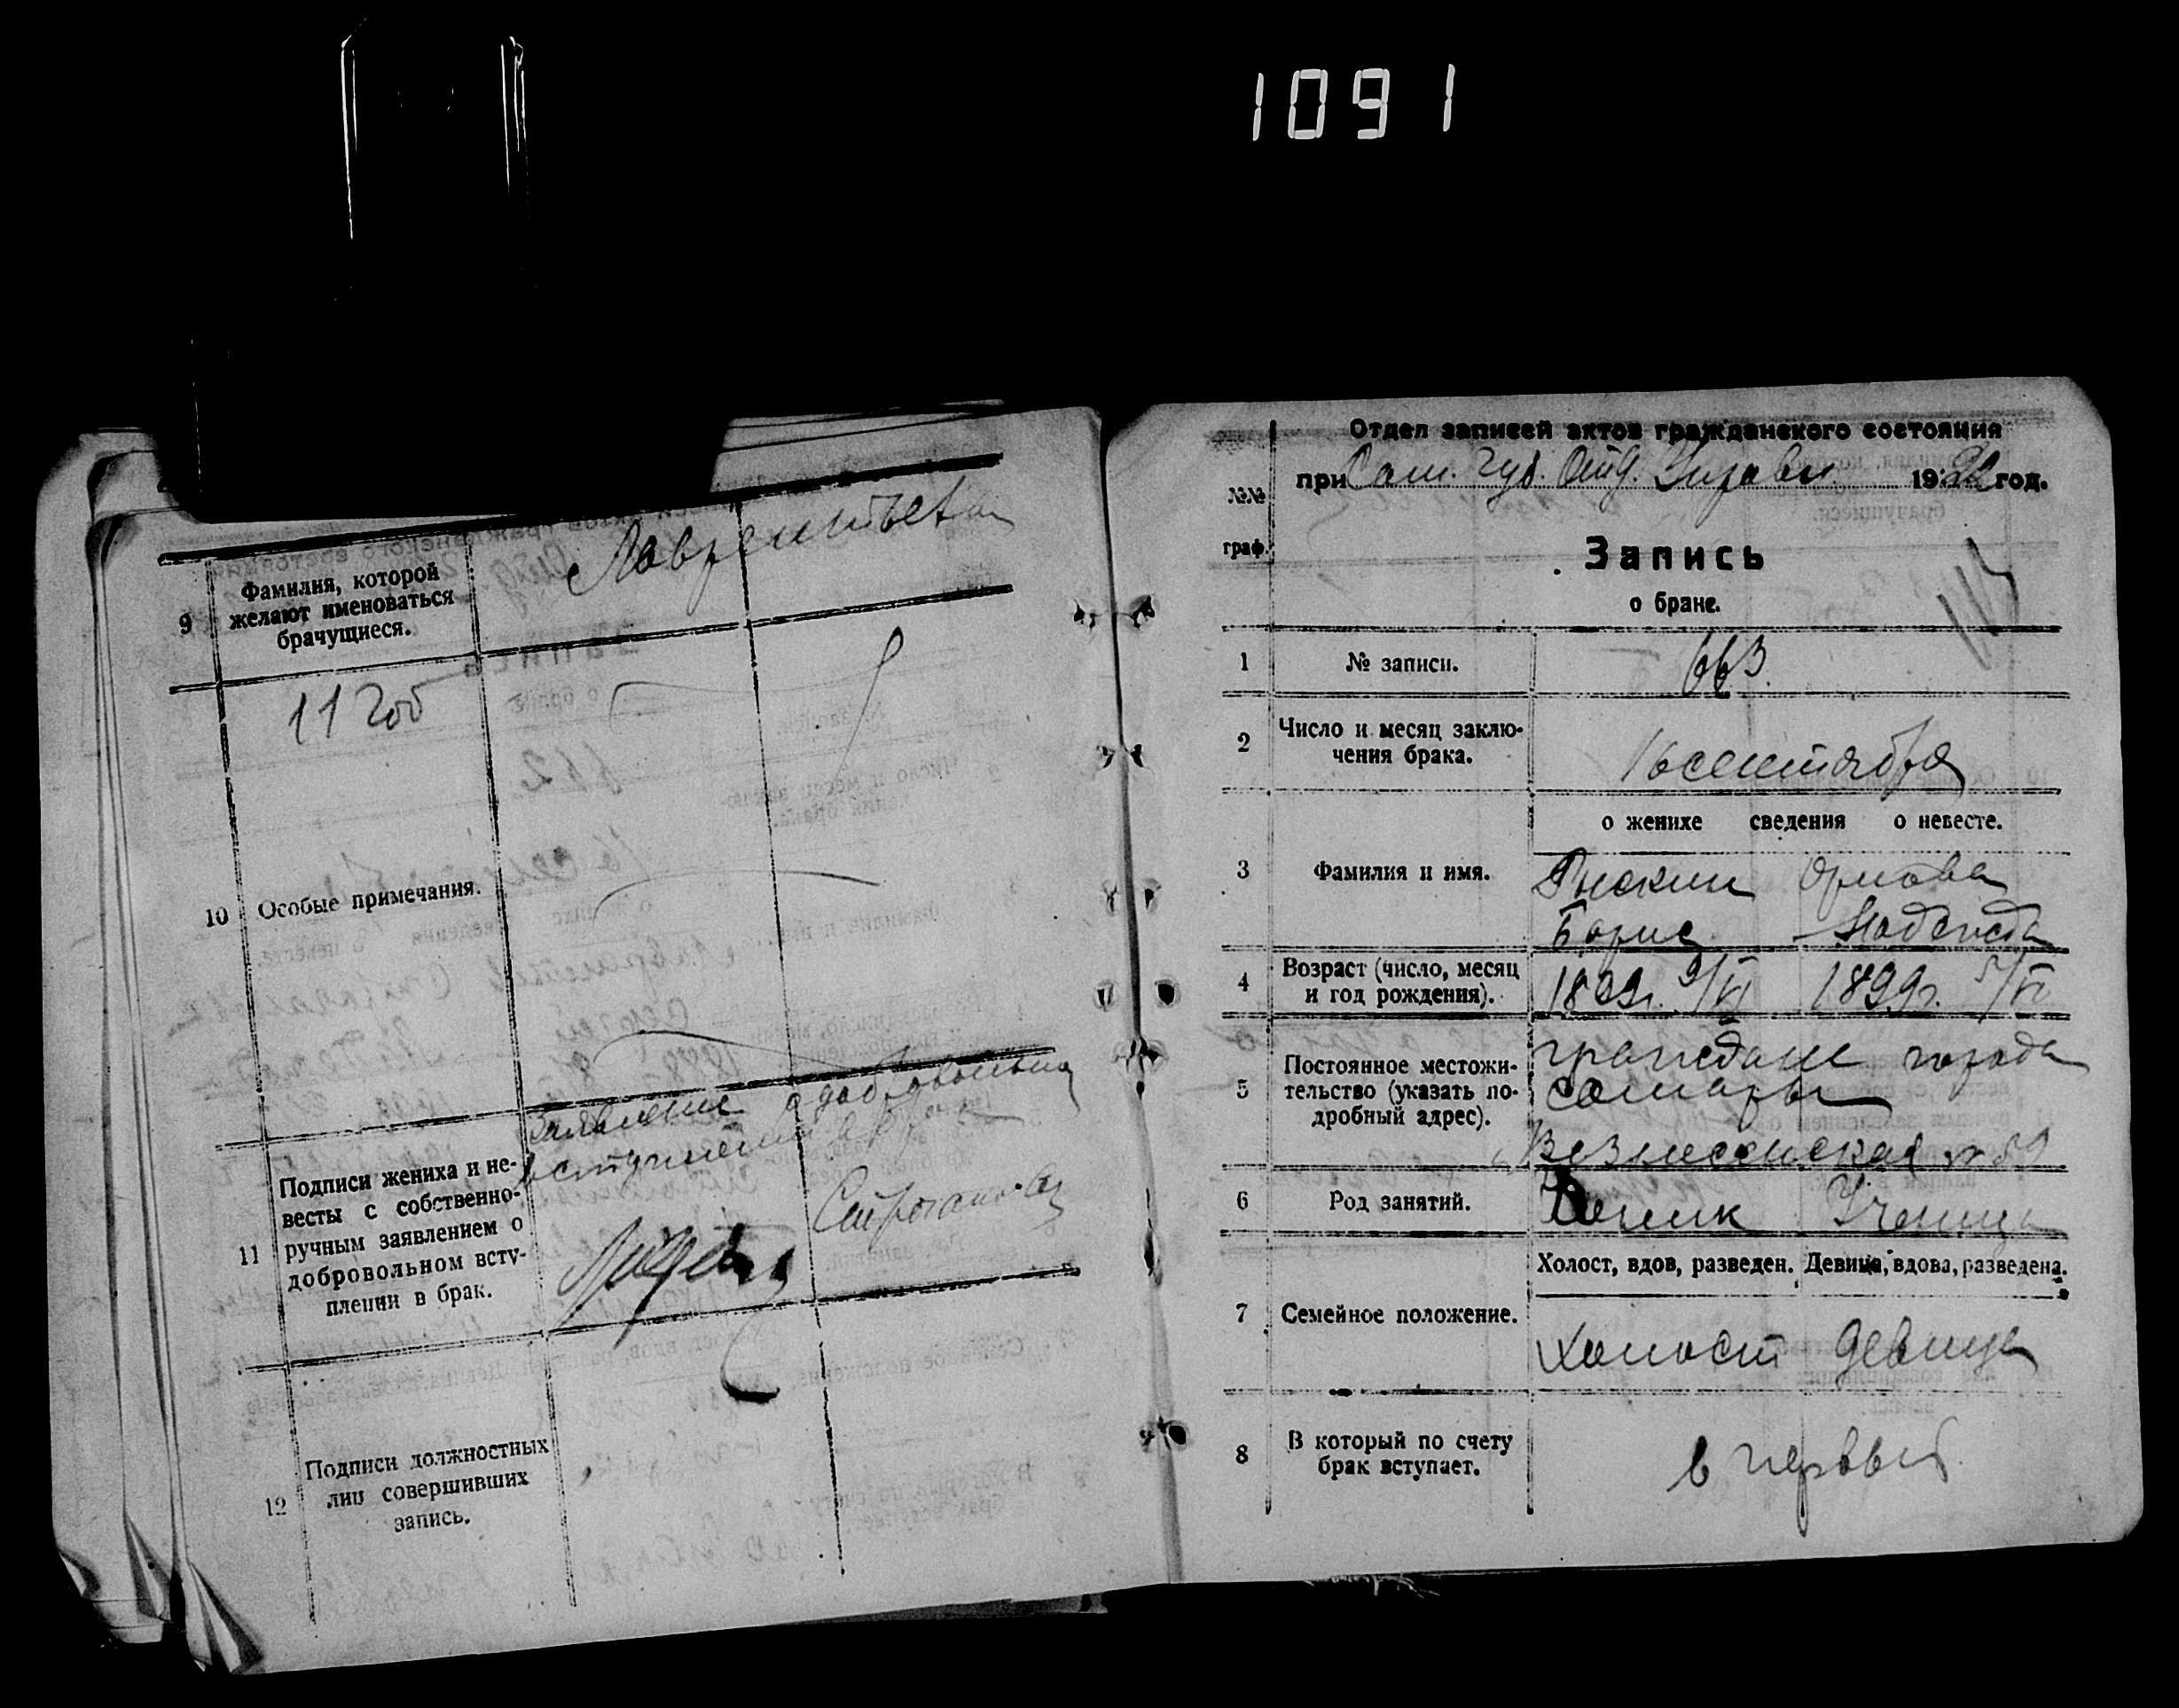 1091
9
Фамилия, которой
желают именоваться
брачущиеся.
Лаврентьева
10
Особые примечания.
11
Подписи жениха и не-
весты с собственно-
ручным заявлением о
добровольном всту-
плении в брак.
Заявление о добровольном
вступлении в брак
Строганова
12
Подписи должностных
лиц совершивших
запись.
Отдел записей актов гражданского состояния
при Сам. Губ. Отд. Управл. 1922 год.
№№
граф.
Запись
о браке.
1
№ записи.
663.
2
Число и месяц заклю-
чения брака.
16 сентября
о женихе сведения о невесте.
3
Фамилия и имя.
Рыскин Орлова
Борис Надежда
4
Возраст (число, месяц
и год рождения).
1899г. 9/VI 1899г. 5/VI
5
Постоянное местожи-
тельство (указать по-
дробный адрес).
граждане города
Самары
Вознесенская № 89
6
Род занятий.
Ученица
Холост, вдов, разведен. Девица, вдова, разведена.
7
Семейное положение.
Холост девица
8
В который по счету
брак вступает.
в первый